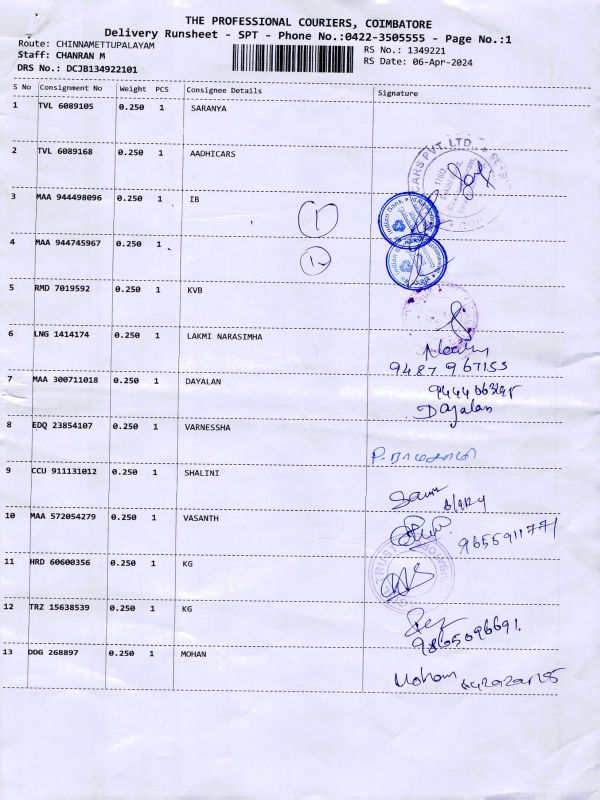 THE PROFESSIONAL COURIERS, COIMBATORE
Delivery Runsheet - SPT - Phone No.:0422-3505555 - Page No.:1
Route: CHINNAMETTUPALAYAM RS No.: 1349221
Staff: CHANRAN M RS Date: 06-Apr-2024
DRS No.: DCJB134922101
S No Consignment No Weight PCS Consignee Details Signature
1 TVL 6089105 0.250 1 SARANYA
2 TVL 6089168 0.250 1 AADHICARS
CARS PVT. LTD.
3 MAA 944498096 0.250 1 IB
Indian Bank
4 MAA 944745967 0.250 1
5 RMD 7019592 0.250 1 KVB
6 LNG 1414174 0.250 1 LAKMI NARASIMHA
9487967155
7 MAA 300711018 0.250 1 DAYALAN
Dayalan
8 EDQ 23854107 0.250 1 VARNESSHA
9 CCU 911131012 0.250 1 SHALINI
10 MAA 572054279 0.250 1 VASANTH
9655911771
TRUST
11 HRD 60600356 0.250 1 KG
12 TRZ 15638539 0.250 1 KG
9865096691.
13 DDG 268897 0.250 1 MOHAN
Mohan